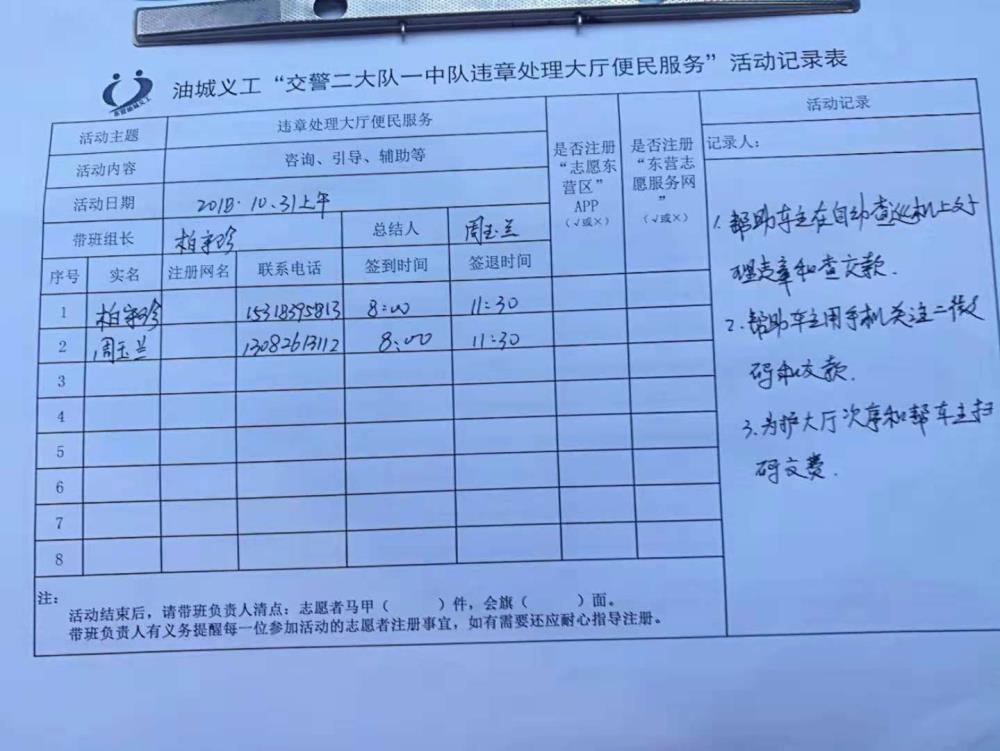 油城义工“交警二大队一中队违章处理大厅便民服务”活动记录表
活动主题 违章处理大厅便民服务
活动内容 咨询、引导、辅助等
活动日期 2018.10.31上午
带班组长 柏宝珍 总结人 周玉兰
是否注册“志愿东营区”APP（√或×）
是否注册“东营志愿服务网”（√或×）
序号 实名 注册网名 联系电话 签到时间 签退时间
1 柏宝珍 15318395813 8:00 11:30
2 周玉兰 13082613112 8:00 11:30
3
4
5
6
7
8
活动记录
记录人：
1.帮助车主在自动查巡机上处
理违章和查交款.
2.帮助车主用手机关注二维
码和交款.
3.为护大厅次序和帮车主扫
码交费.
注：
活动结束后，请带班负责人清点：志愿者马甲（ ）件，会旗（ ）面。
带班负责人有义务提醒每一位参加活动的志愿者注册事宜，如有需要还应耐心指导注册。